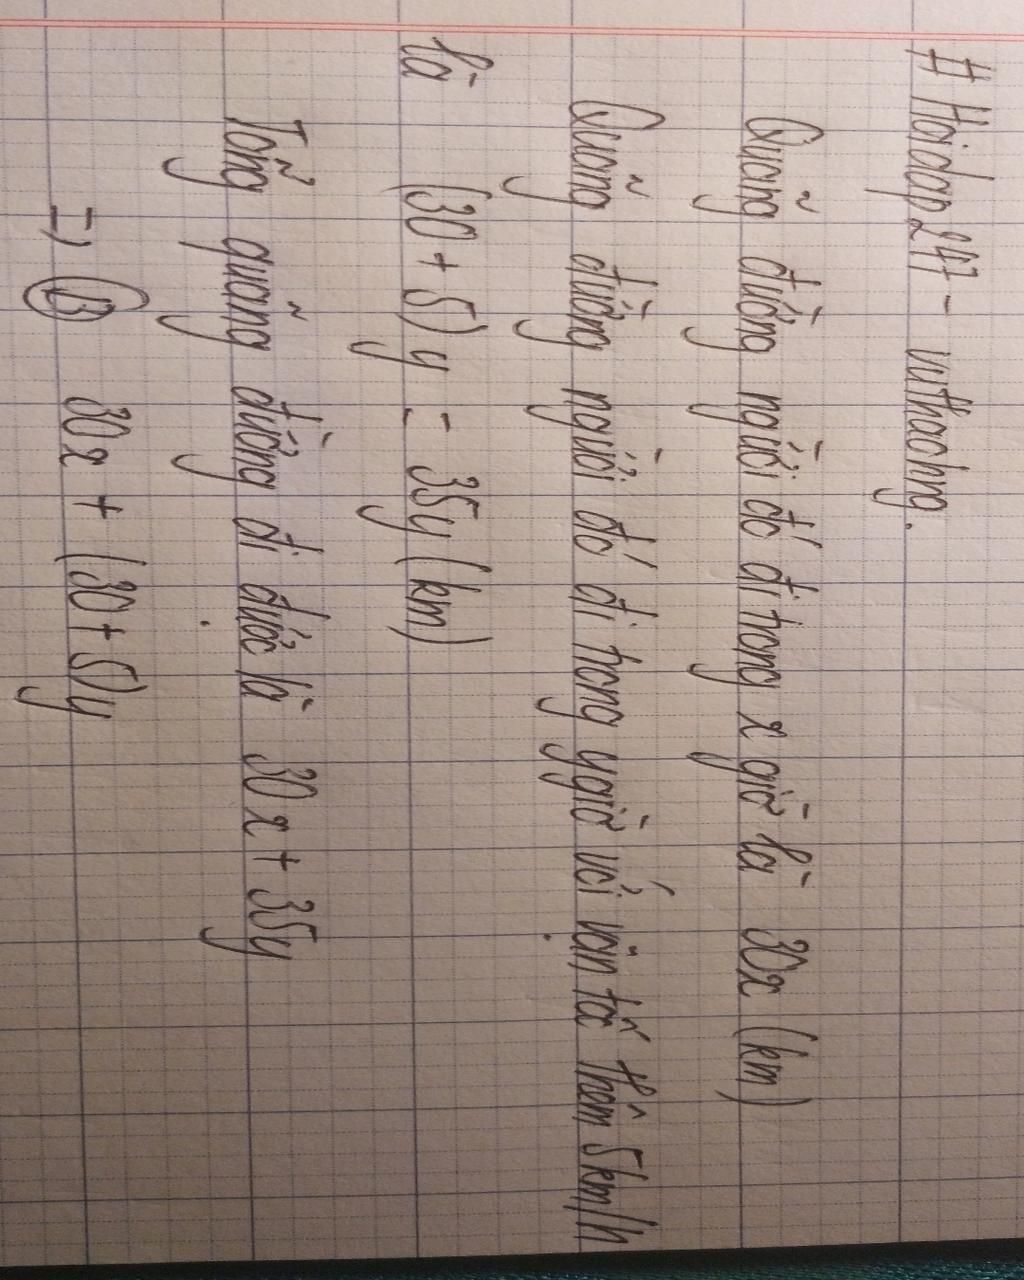 # Hoidap247 - vuthaohng.
Quãng đường người đó đi trong x giờ là 30x (km)
Quãng đường người đó đi trong y giờ với vận tốc thêm 5km/h
là (30 + 5)y = 35y (km)
Tổng quãng đường đi được là 30x + 35y
=> B 30x + (30 + 5)y